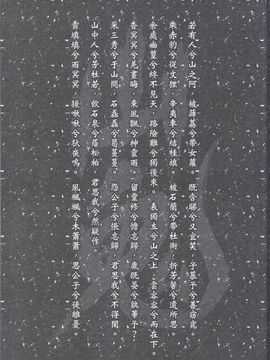 若有人兮山之阿,被薜荔兮帶女蘿。既含睇兮又宜笑,子慕予兮善窈窕。
乘赤豹兮從文狸,辛夷車兮結桂旗。被石蘭兮帶杜衡,折芳馨兮遺所思。
余處幽篁兮終不見天,路險難兮獨後來。表獨立兮山之上,雲容容兮而在下。
杳冥冥兮羌晝晦,東風飄兮神靈雨。留靈修兮憺忘歸,歲既晏兮孰華予?
采三秀兮于山間,石磊磊兮葛蔓蔓。怨公子兮悵忘歸,君思我兮不得閒。
山中人兮芳杜若,飲石泉兮蔭松柏,君思我兮然疑作。
雷填填兮雨冥冥,猨啾啾兮狖夜鳴。風颯颯兮木蕭蕭,思公子兮徒離憂。